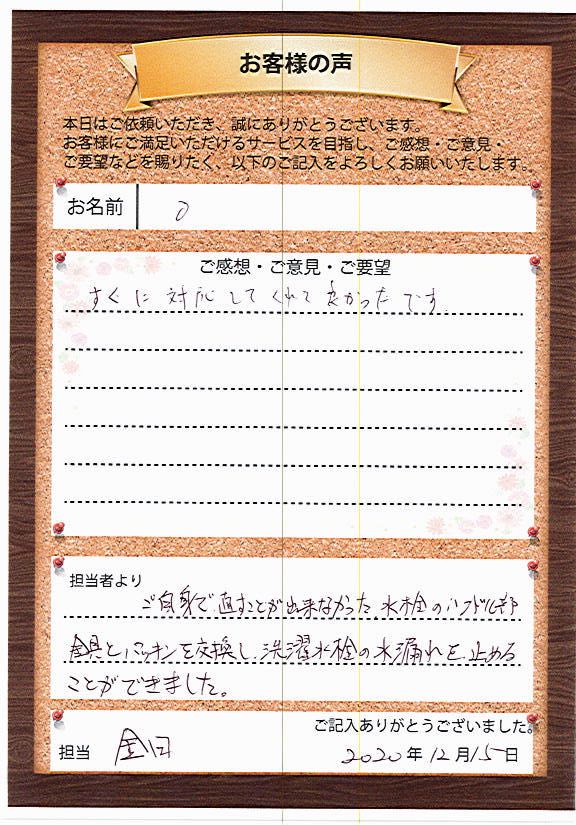 お客様の声
本日はご依頼いただき、誠にありがとうございます。
お客様にご満足いただけるサービスを目指し、ご感想・ご意見・
ご要望などを賜りたく、以下のご記入をよろしくお願いいたします。
お名前
ご感想・ご意見・ご要望
すぐに対応してくれて良かったです
担当者より
ご自身で直すことが出来なかった、水栓のハンドル部
金具とパッキンを交換し、洗濯水栓の水漏れを止める
ことができました。
ご記入ありがとうございました。
担当
2020年12月15日